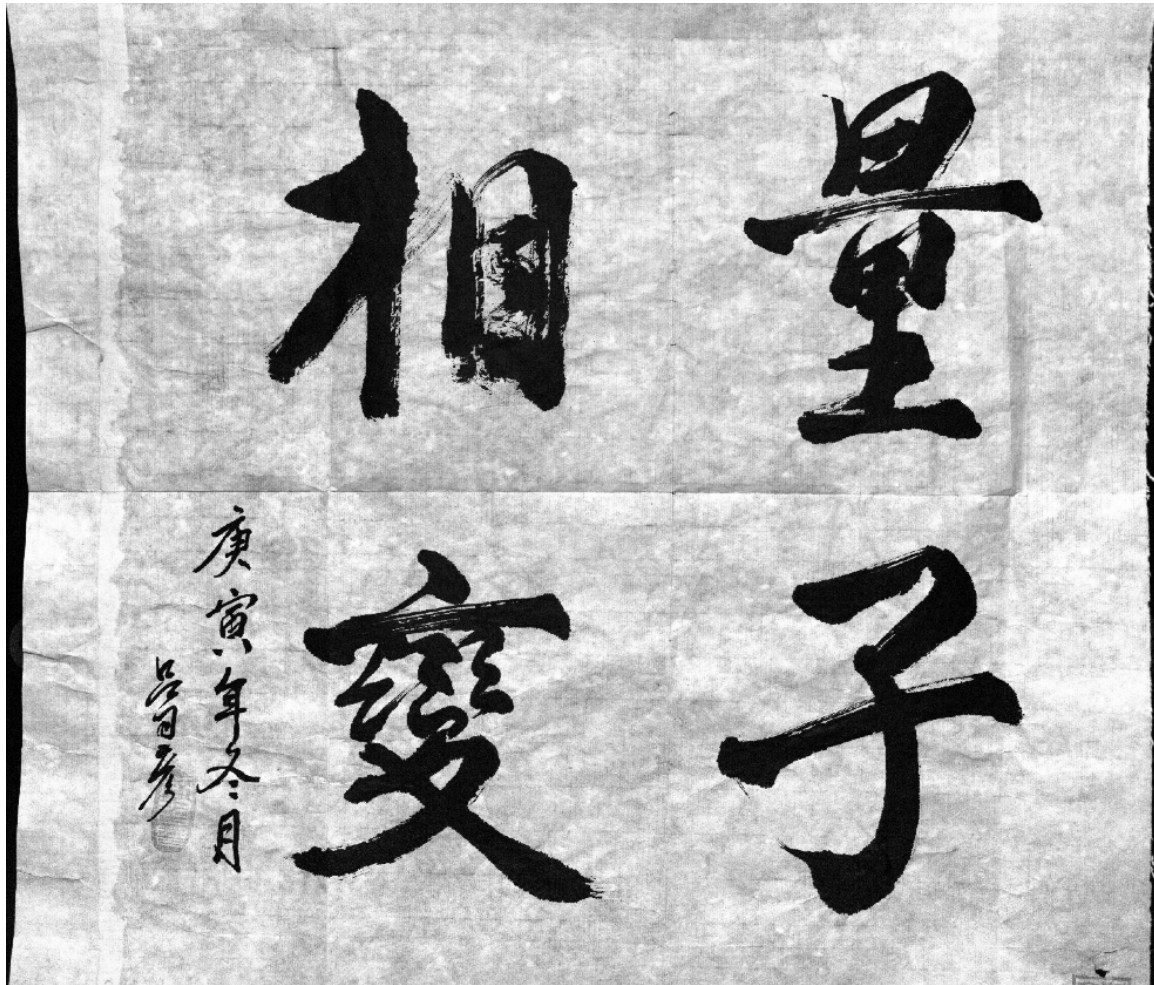 量子
相變
庚寅年冬月